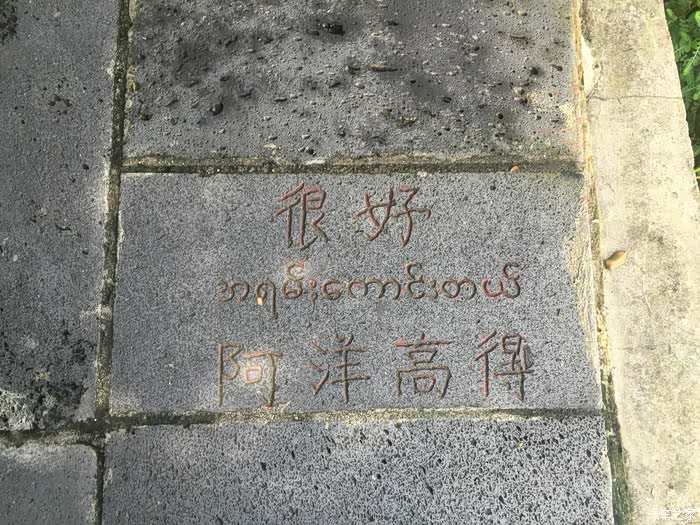 很好
အရမ်းကောင်းတယ်
阿洋高得